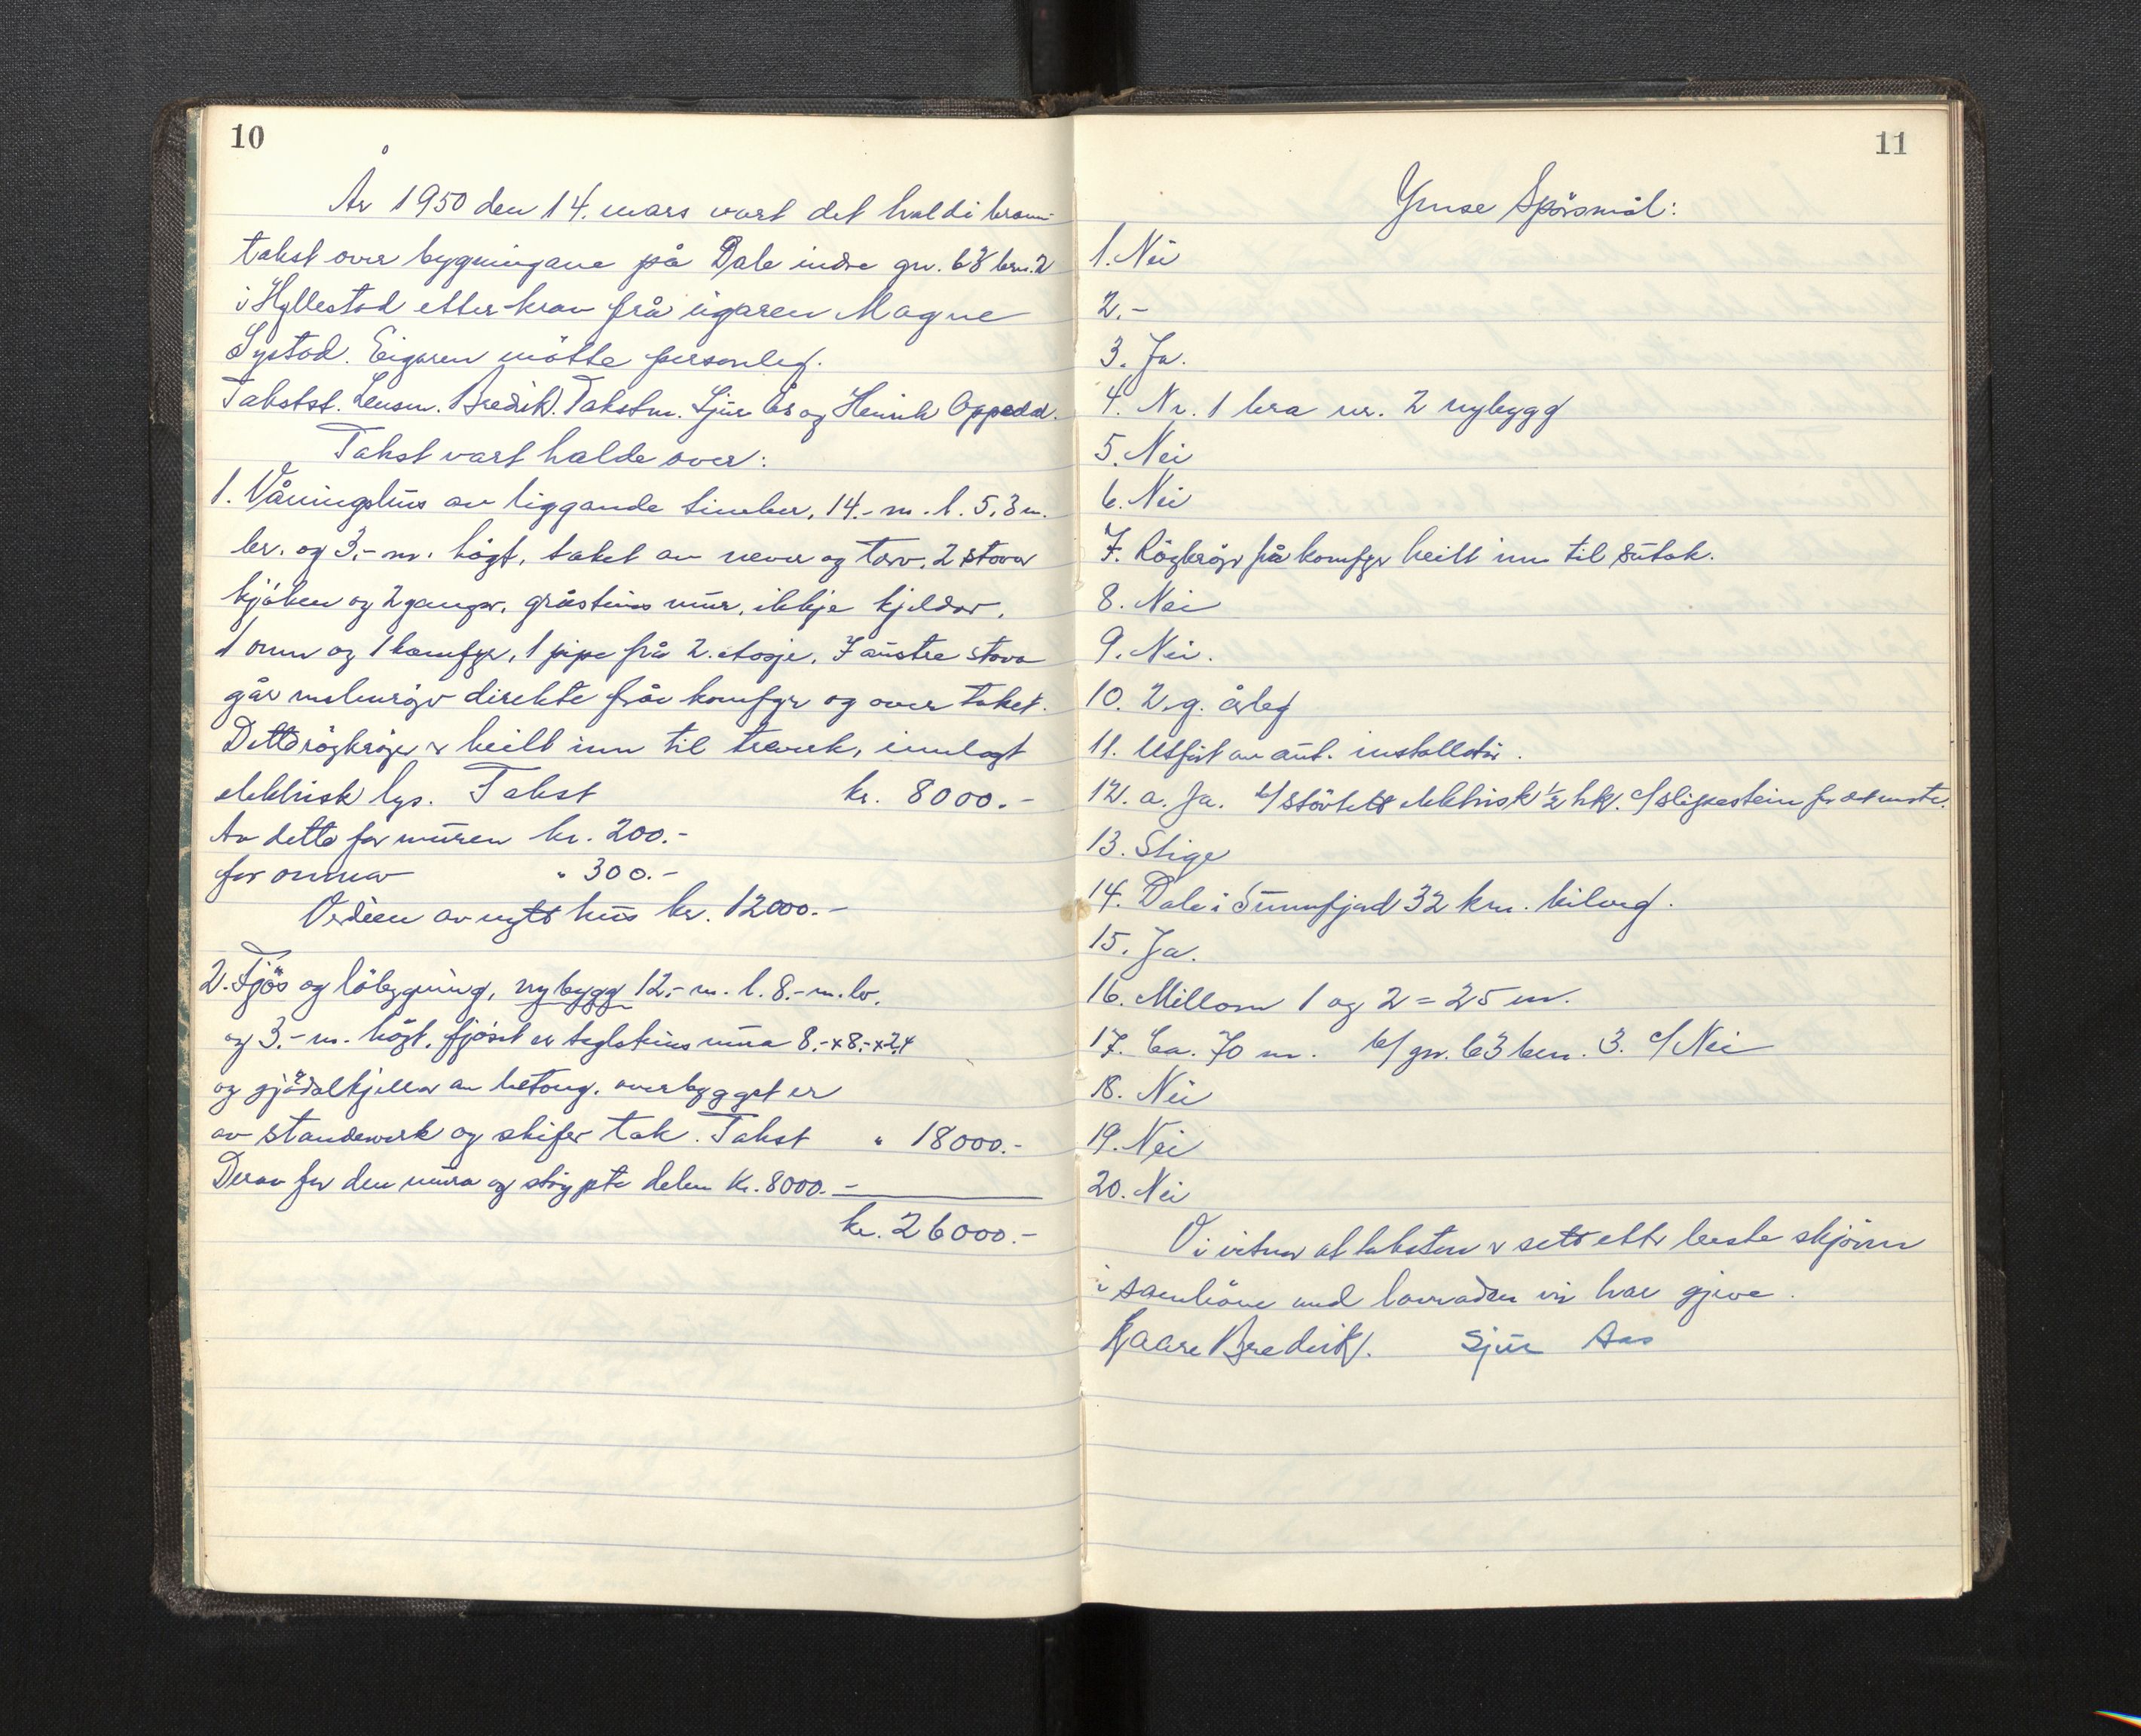 10
År 1950 den 14. mars vart det haldi brann-
takst over bygningane på Dale indre gn. 63 brn. 2
i Hyllestad etter krav frå eigaren Magne
Systad. Eigaren møtte personleg.
Takstst. Lensm. Bredvik. Takstm. Sjur Ås og Henrik Oppedal.
Takst vart halde over:
1. Våningshus av liggande timber, 14.- m. l. 5,3 m.
br. og 3.- m. högt, taket av never og torv. 2 stover
kjöken og 2 ganger, gråsteins mur, ikkje kjeldar,
1 omn og 1 komfyr, 1 pipe frå 2. etasje. I austre stova
går röykröyr direkte frå komfyr og over taket.
Dette röykröyr er heilt inn til treverk, innlagt
elektrisk lys. Takst kr. 8000.-
Av dette for muren kr. 200.-
for omnar " 300.-
Verdien av nytt hus kr. 12000.-
2. Fjös og löbygning, nybygg 12.- m. l. 8.- m. br.
og 3.- m. högt, fjöset er teglsteins mura 8.- x 8.- x 2,4
og gjödselkjellar av betong. overbygget er
av standerverk og skifer tak. Takst " 18000.-
Derav for den mura og stöypte delen kr. 8000.-
kr. 26000.-
11
Ymse Spörsmål:
1. Nei
2. -
3. Ja.
4. Nr. 1 bra nr. 2 nybygg
5. Nei
6. Nei
7. Röykröyr på komfyr heilt inn til sutak.
8. Nei
9. Nei.
10. 2. g. årleg
11. Utfört av aut. installatör.
12. a. Ja. b/ elektrisk 1/2 hk. c/ slipestein
13. Stige
14. Dale i Sunnfjord 32 km. bilveg.
15. Ja.
16. Millom 1 og 2 = 25 m.
17. Ca. 70 m. b/ gn. 63 brn. 3. c/ Nei
18. Nei
19. Nei
20. Nei
Vi vitnar at taksten er sett etter beste skjönn
i samhöve med lovnaden vi har gjeve.
Kaare Bredvik. Sjur Aas